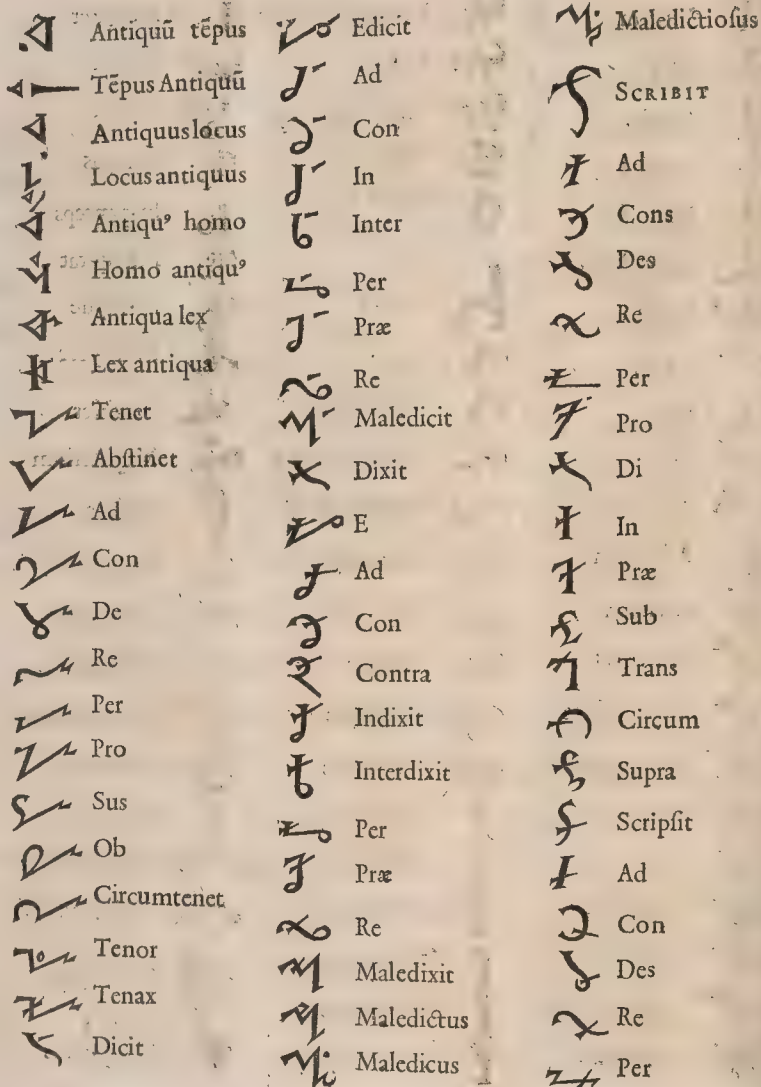 Antiquũ tẽpus
Tẽpus Antiquũ
Antiquus locus
Locus antiquus
Antiquꝰ homo
Homo antiquꝰ
Antiqua lex
Lex antiqua
Tenet
Abſtinet
Ad
Con
De
Re
Per
Pro
Sus
Ob
Circumtenet
Tenor
Tenax
Dicit
Edicit
Ad
Con
In
Inter
Per
Præ
Re
Maledicit
Dixit
E
Ad
Con
Contra
Indixit
Interdixit
Per
Præ
Re
Maledixit
Maledictus
Maledicus
Maledictioſus
SCRIBIT
Ad
Cons
Des
Re
Per
Pro
Di
In
Præ
Sub
Trans
Circum
Supra
Scripſit
Ad
Con
Des
Re
Per